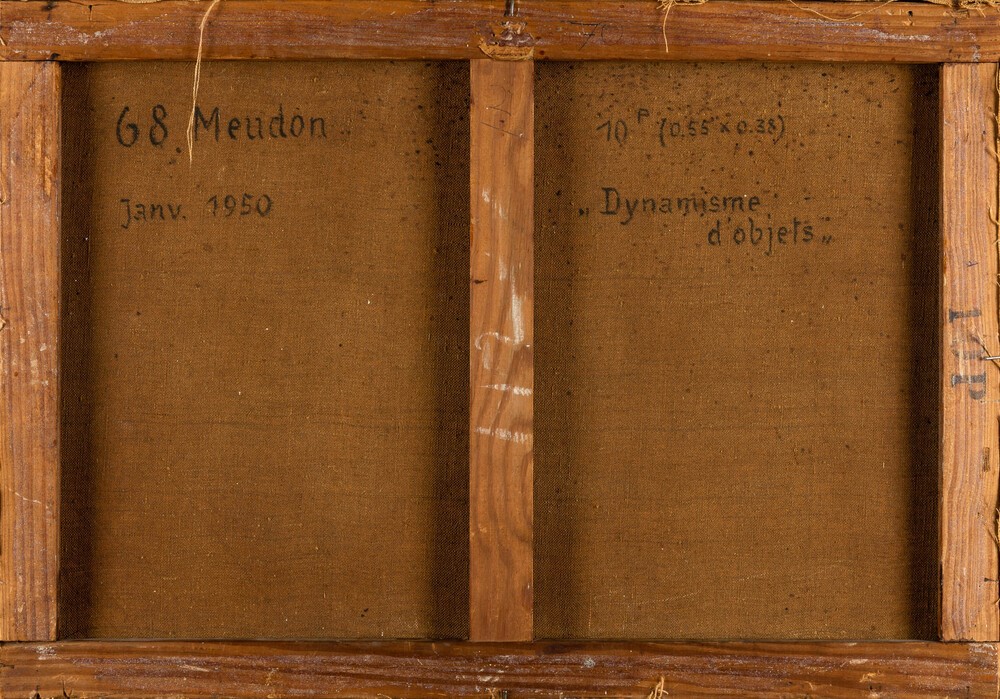 70
68 Meudon
Janv. 1950
10 P (0.55 x 0.38)
„Dynamisme
d'objets„
10P